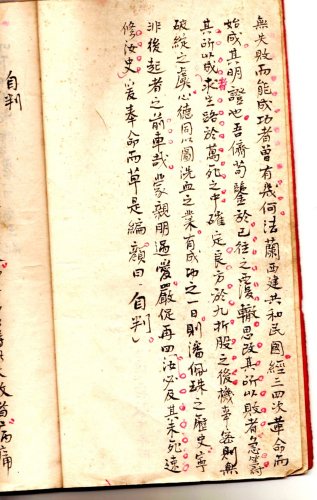 無失敗而能成功者曾有幾何法蘭西建共和民國經三四次革命而
始成其明證也吾儕苟鑒於已往之覆轍思改其所以敗者急籌
其所以成者求生路於萬死之中確定良方於九折股之後機事密則無
破綻之虞心德同以圖洗血之業有成功之一日則潘佩珠之歷史寧
非後起者之前車哉蒙親朋過愛嚴促再四汝必及其未死速
修汝史爰奉命而草是編顏曰自判
自判